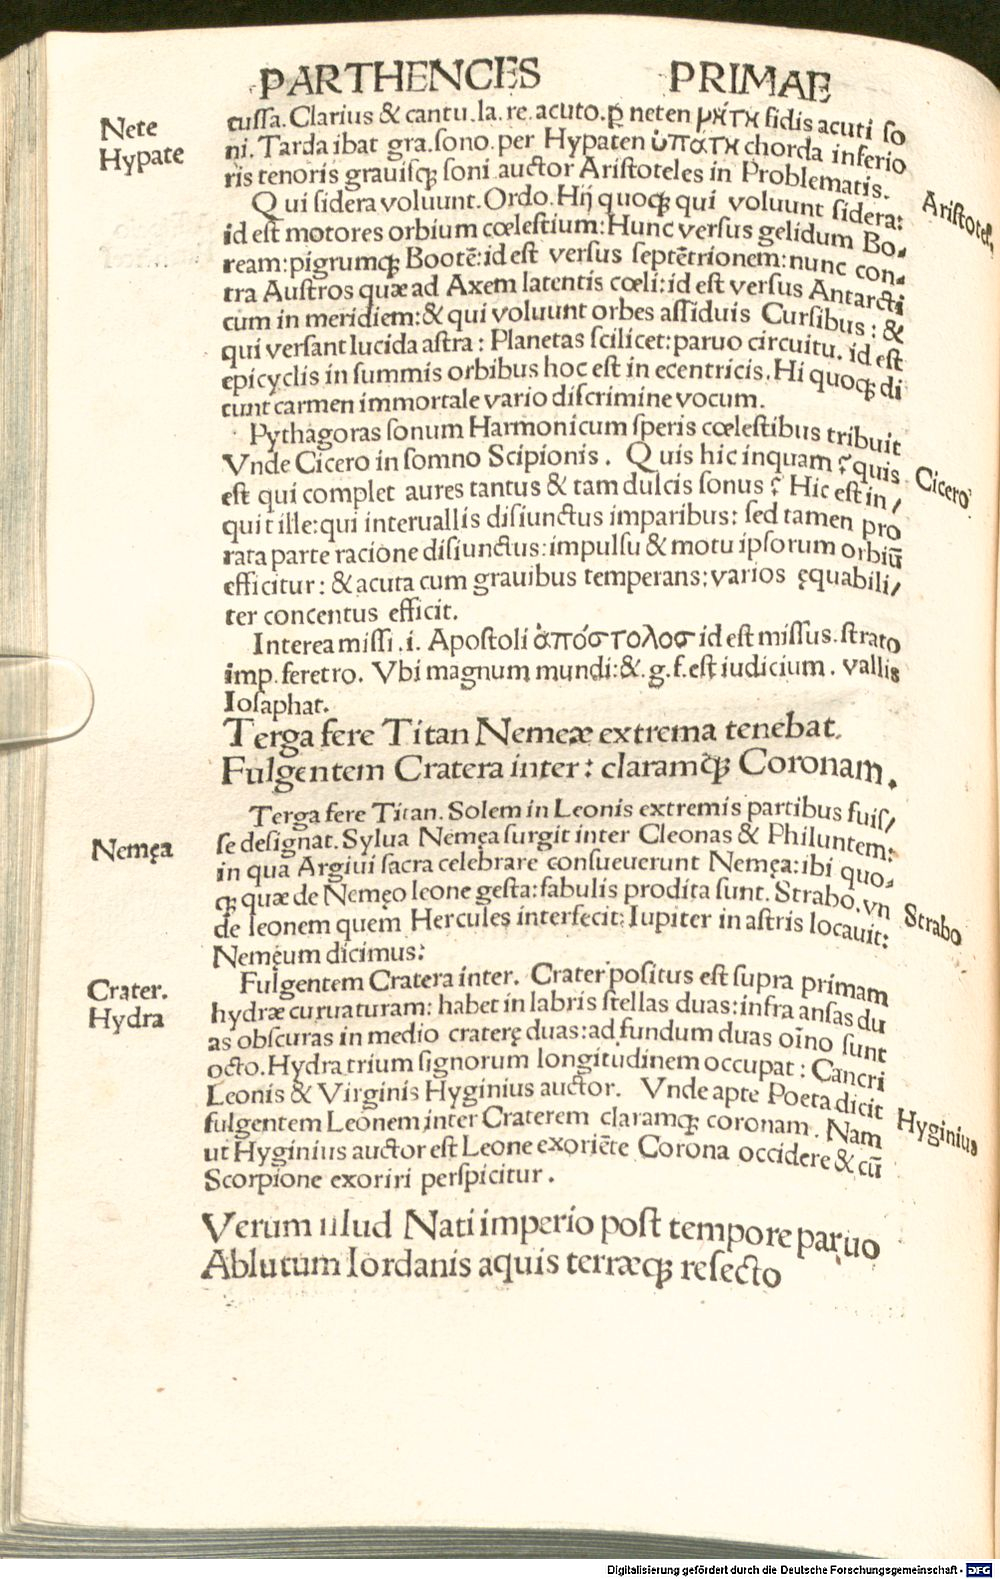 PARTHENCES PRIMAE
Nete
Hypate
cussa. Clarius & cantu. la. re. acuto. p̱ neten μήτη sidis acuti so
ni. Tarda ibat gra. sono. per Hypaten ὑπατη chorda inferio
ris tenoris grauisqꝫ soni auctor Aristoteles in Problematis.
Aristotel.
Qui sidera voluunt. Ordo. Hij quoqꝫ qui voluunt sidera:
id est motores orbium cœlestium: Hunc versus gelidum Bo-
ream: pigrumqꝫ Bootē: id est versus septētrionem: nunc con-
tra Austros quæ ad Axem latentis cœli: id est versus Antarcti
cum in meridiem: & qui voluunt orbes assiduis Cursibus: &
qui versant lucida astra: Planetas scilicet: paruo circuitu. id est
epicyclis in summis orbibus hoc est in ecentricis. Hi quoqꝫ di
cunt carmen immortale vario discrimine vocum.
Pythagoras sonum Harmonicum speris cœlestibus tribuit
Vnde Cicero in somno Scipionis. Quis hic inquam ? quis
Cicero
est qui complet aures tantus & tam dulcis sonus ? Hic est in/
quit ille: qui interuallis disiunctus imparibus: sed tamen pro
rata parte racione disiunctus: impulsu & motu ipsorum orbiū
efficitur: & acuta cum grauibus temperans: varios ęquabili/
ter concentus efficit.
Interea missi. i. Apostoli ἀπόστολοσ id est missus. strato
imp. feretro. Vbi magnum mundi: &. g. f. est iudicium. vallis
Iosaphat.
Terga fere Titan Nemeæ extrema tenebat.
Fulgentem Cratera inter: claramqꝫ Coronam.
Terga fere Titan. Solem in Leonis extremis partibus fuis/
Nemęa
se designat. Sylua Nemęa surgit inter Cleonas & Philuntem:
in qua Argiui sacra celebrare consueuerunt Nemęa: ibi quo-
qꝫ quæ de Nemęo leone gesta: fabulis prodita sunt. Strabo. vn
Strabo
de leonem quem Hercules interfecit: Iupiter in astris locauit:
Nemęum dicimus:
Crater.
Hydra
Fulgentem Cratera inter. Crater positus est supra primam
hydræ curuaturam: habet in labris stellas duas: infra ansas du
as obscuras in medio craterę duas: ad fundum duas oīno sunt
octo. Hydra trium signorum longitudinem occupat: Cancri
Leonis & Virginis Hyginius auctor. Vnde apte Poeta dicit
Hyginius
fulgentem Leonem inter Craterem claramqꝫ coronam. Nam
ut Hyginius auctor est Leone exoriēte Corona occidere & cū
Scorpione exoriri perspicitur.
Verum illud Nati imperio post tempore paruo
Ablutum Iordanis aquis terræqꝫ resecto
Digitalisierung gefördert durch die Deutsche Forschungsgemeinschaft - DFG